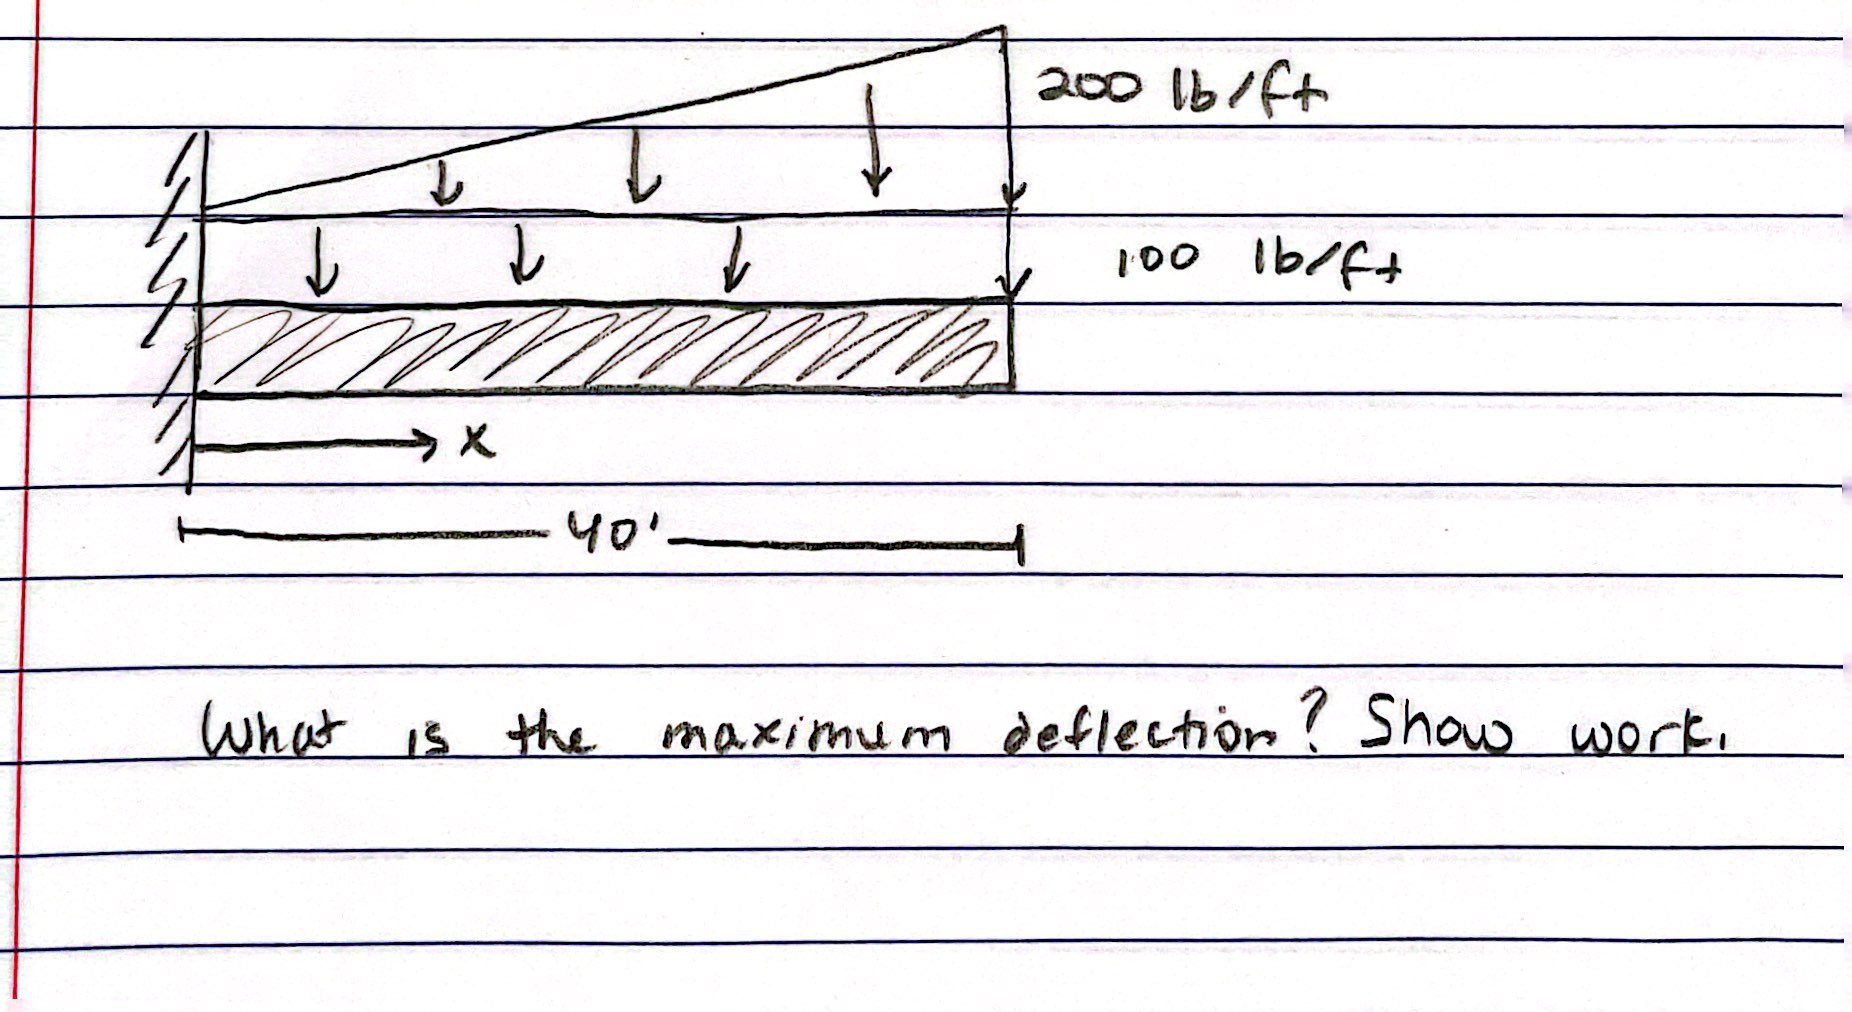 200 lb/ft
100 lb/ft
x
40'
What is the maximum deflection? Show work.